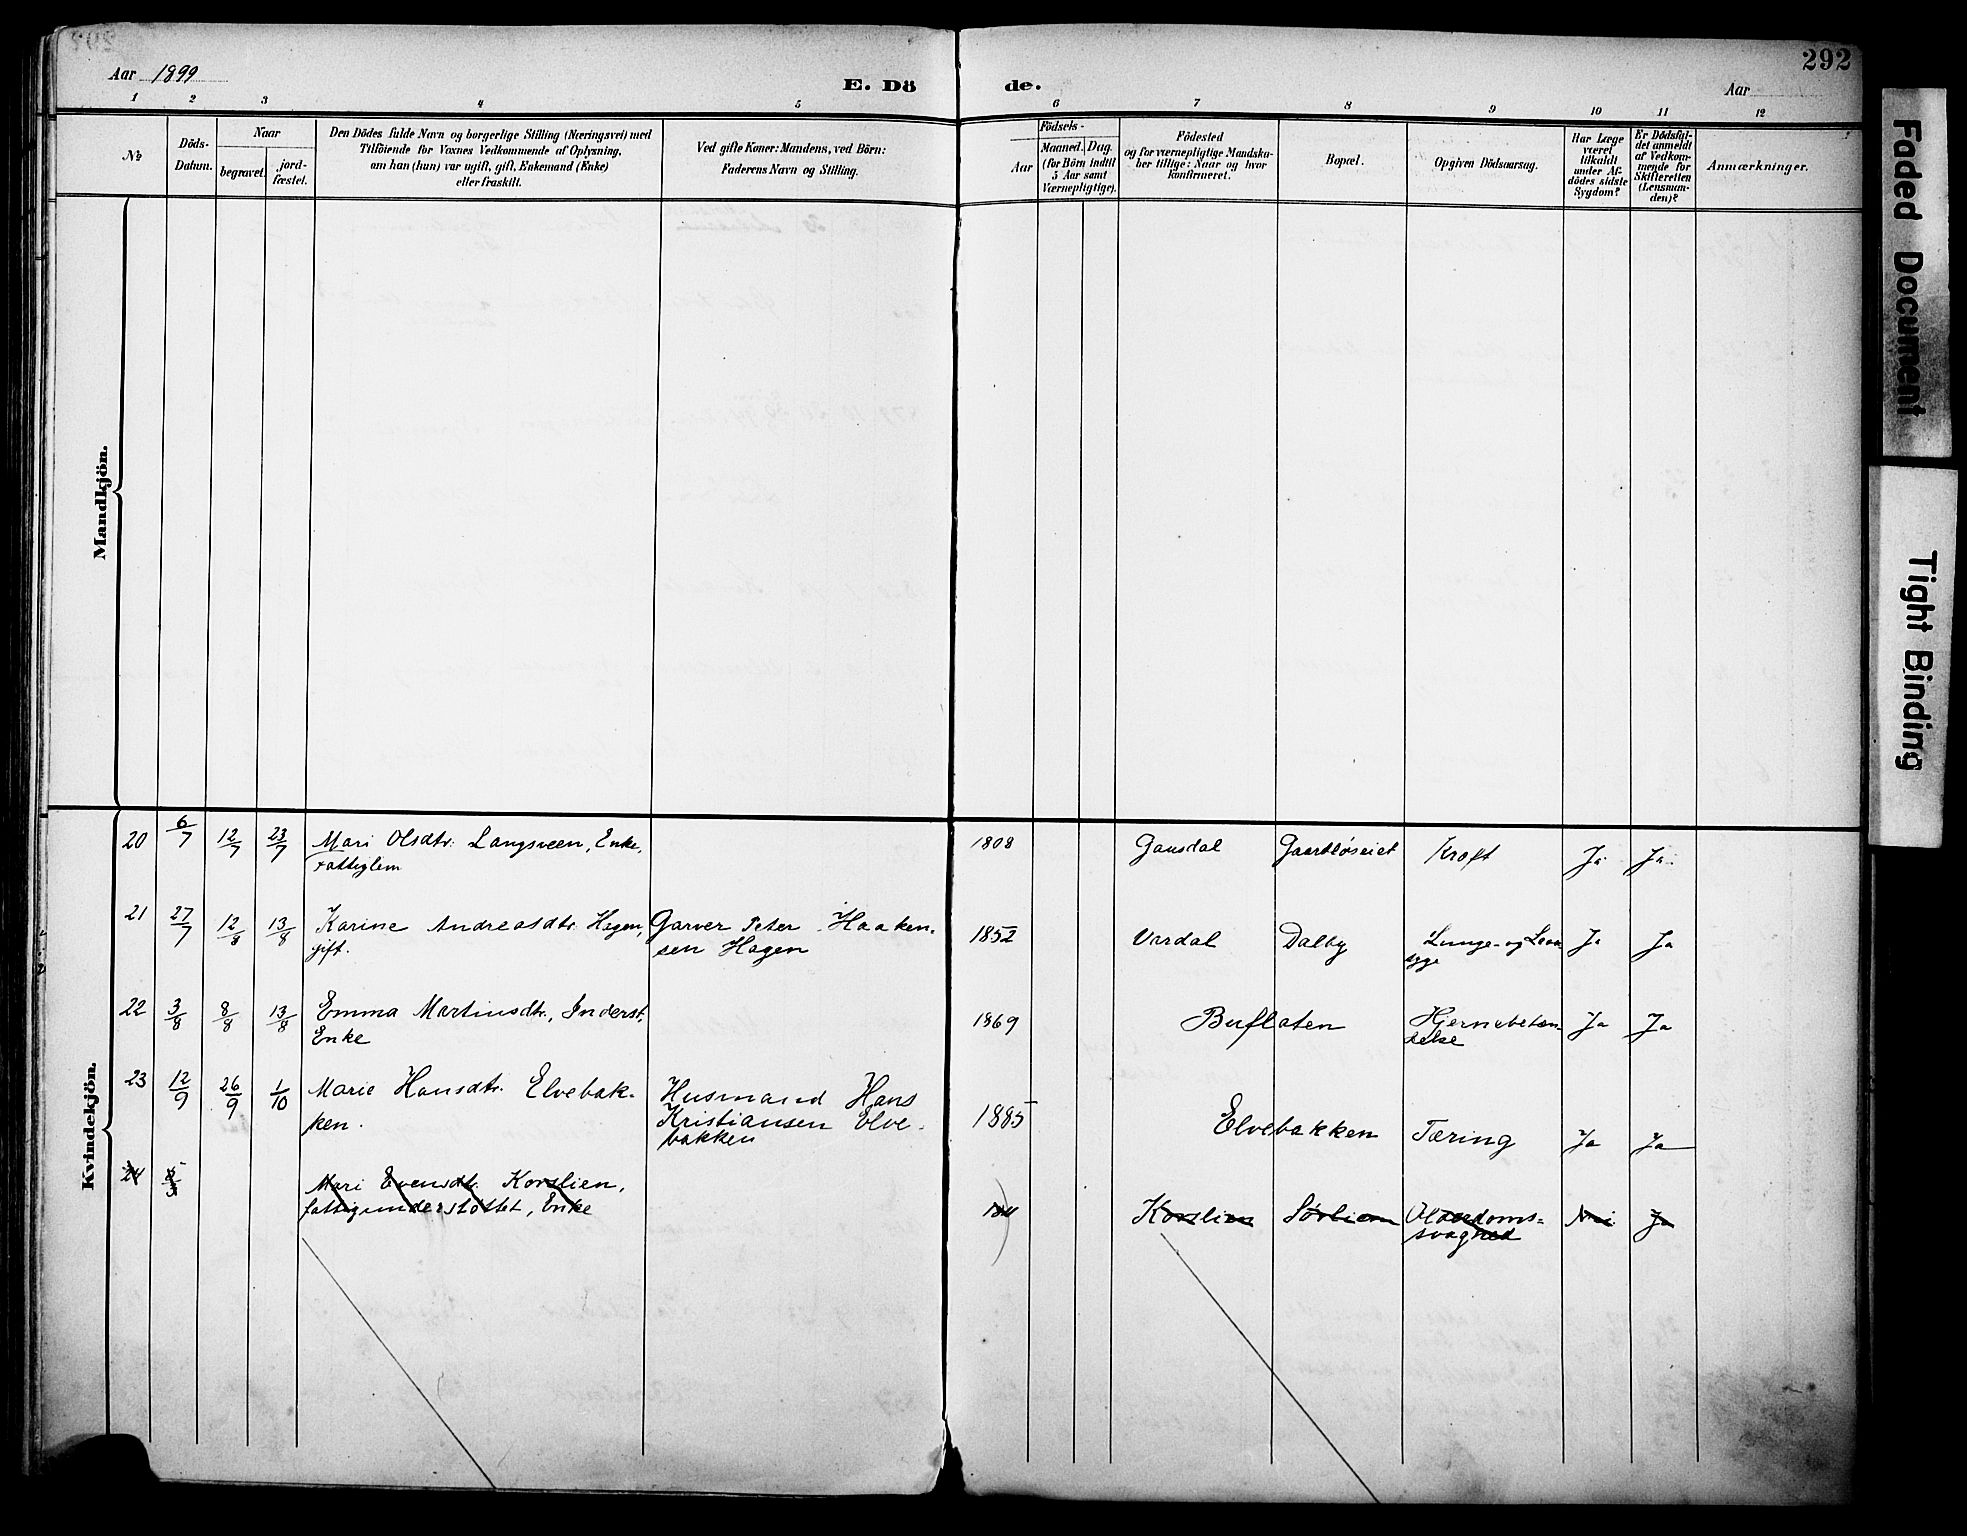 292
Aar 1899
E. Dö
de.
Aar
1 2 3 4 5 6 7 8 9 10 11 12
№
Döds-
Datum.
Naar
begravet.
jord-
fæstet.
Den Dödes fulde Navn og borgerlige Stilling (Næringsvei) med
Tilföiende for Voxnes Vedkommende af Oplysning,
om han (hun) var ugift, gift, Enkemand (Enke)
eller fraskilt.
Ved gifte Koner: Mandens, ved Börn:
Faderens Navn og Stilling.
Födsels-
Aar
Maaned. Dag.
(for Börn indtil
5 Aar samt
Værnepligtige).
Födested
og for værnepligtige Mandska-
ber tillige: Naar og hvor
konfirmeret.
Bopæl.
Opgiven Dödsaarsag.
Har Læge
været
tilkaldt
under Af-
dödes sidste
Sygdom?
Er Dödsfal-
det anmeldt
af Vedkom-
mende for
Skifteretten
(Lensman-
den)?
Anmærkninger.
Mandkjön.
Kvindekjön.
20 6/7 12/7 23/7 Mari Olsdtr. Langsveen, Enke, 1808 Gausdal Gaardløseiet Kræft Ja Ja.
Fattiglem
21 27/7 12/8 13/8 Karine Andreasdtr. Hagen, Garver Peter Haaken- 1852 Vardal Dalby Lunge- og Ja Ja
gift. sen Hagen syge
22 3/8 8/8 13/8 Emma Martinusdtr., Inderst, 1869 Buflaten Hjernebetæn- Ja Ja
Enke delse
23 12/9 26/9 1/10 Marie Hansdtr. Elvebak- Husmand Hans 1885 Elvebakken Tæring Ja Ja
ken. Kristiansen Elve-
bakken
24 Mari Evensdtr. Korslien, Korslien Sørlien Alderdoms- Nei Ja
fattigunderstøttet, Enke svaghed
Faded Document
Tight Binding